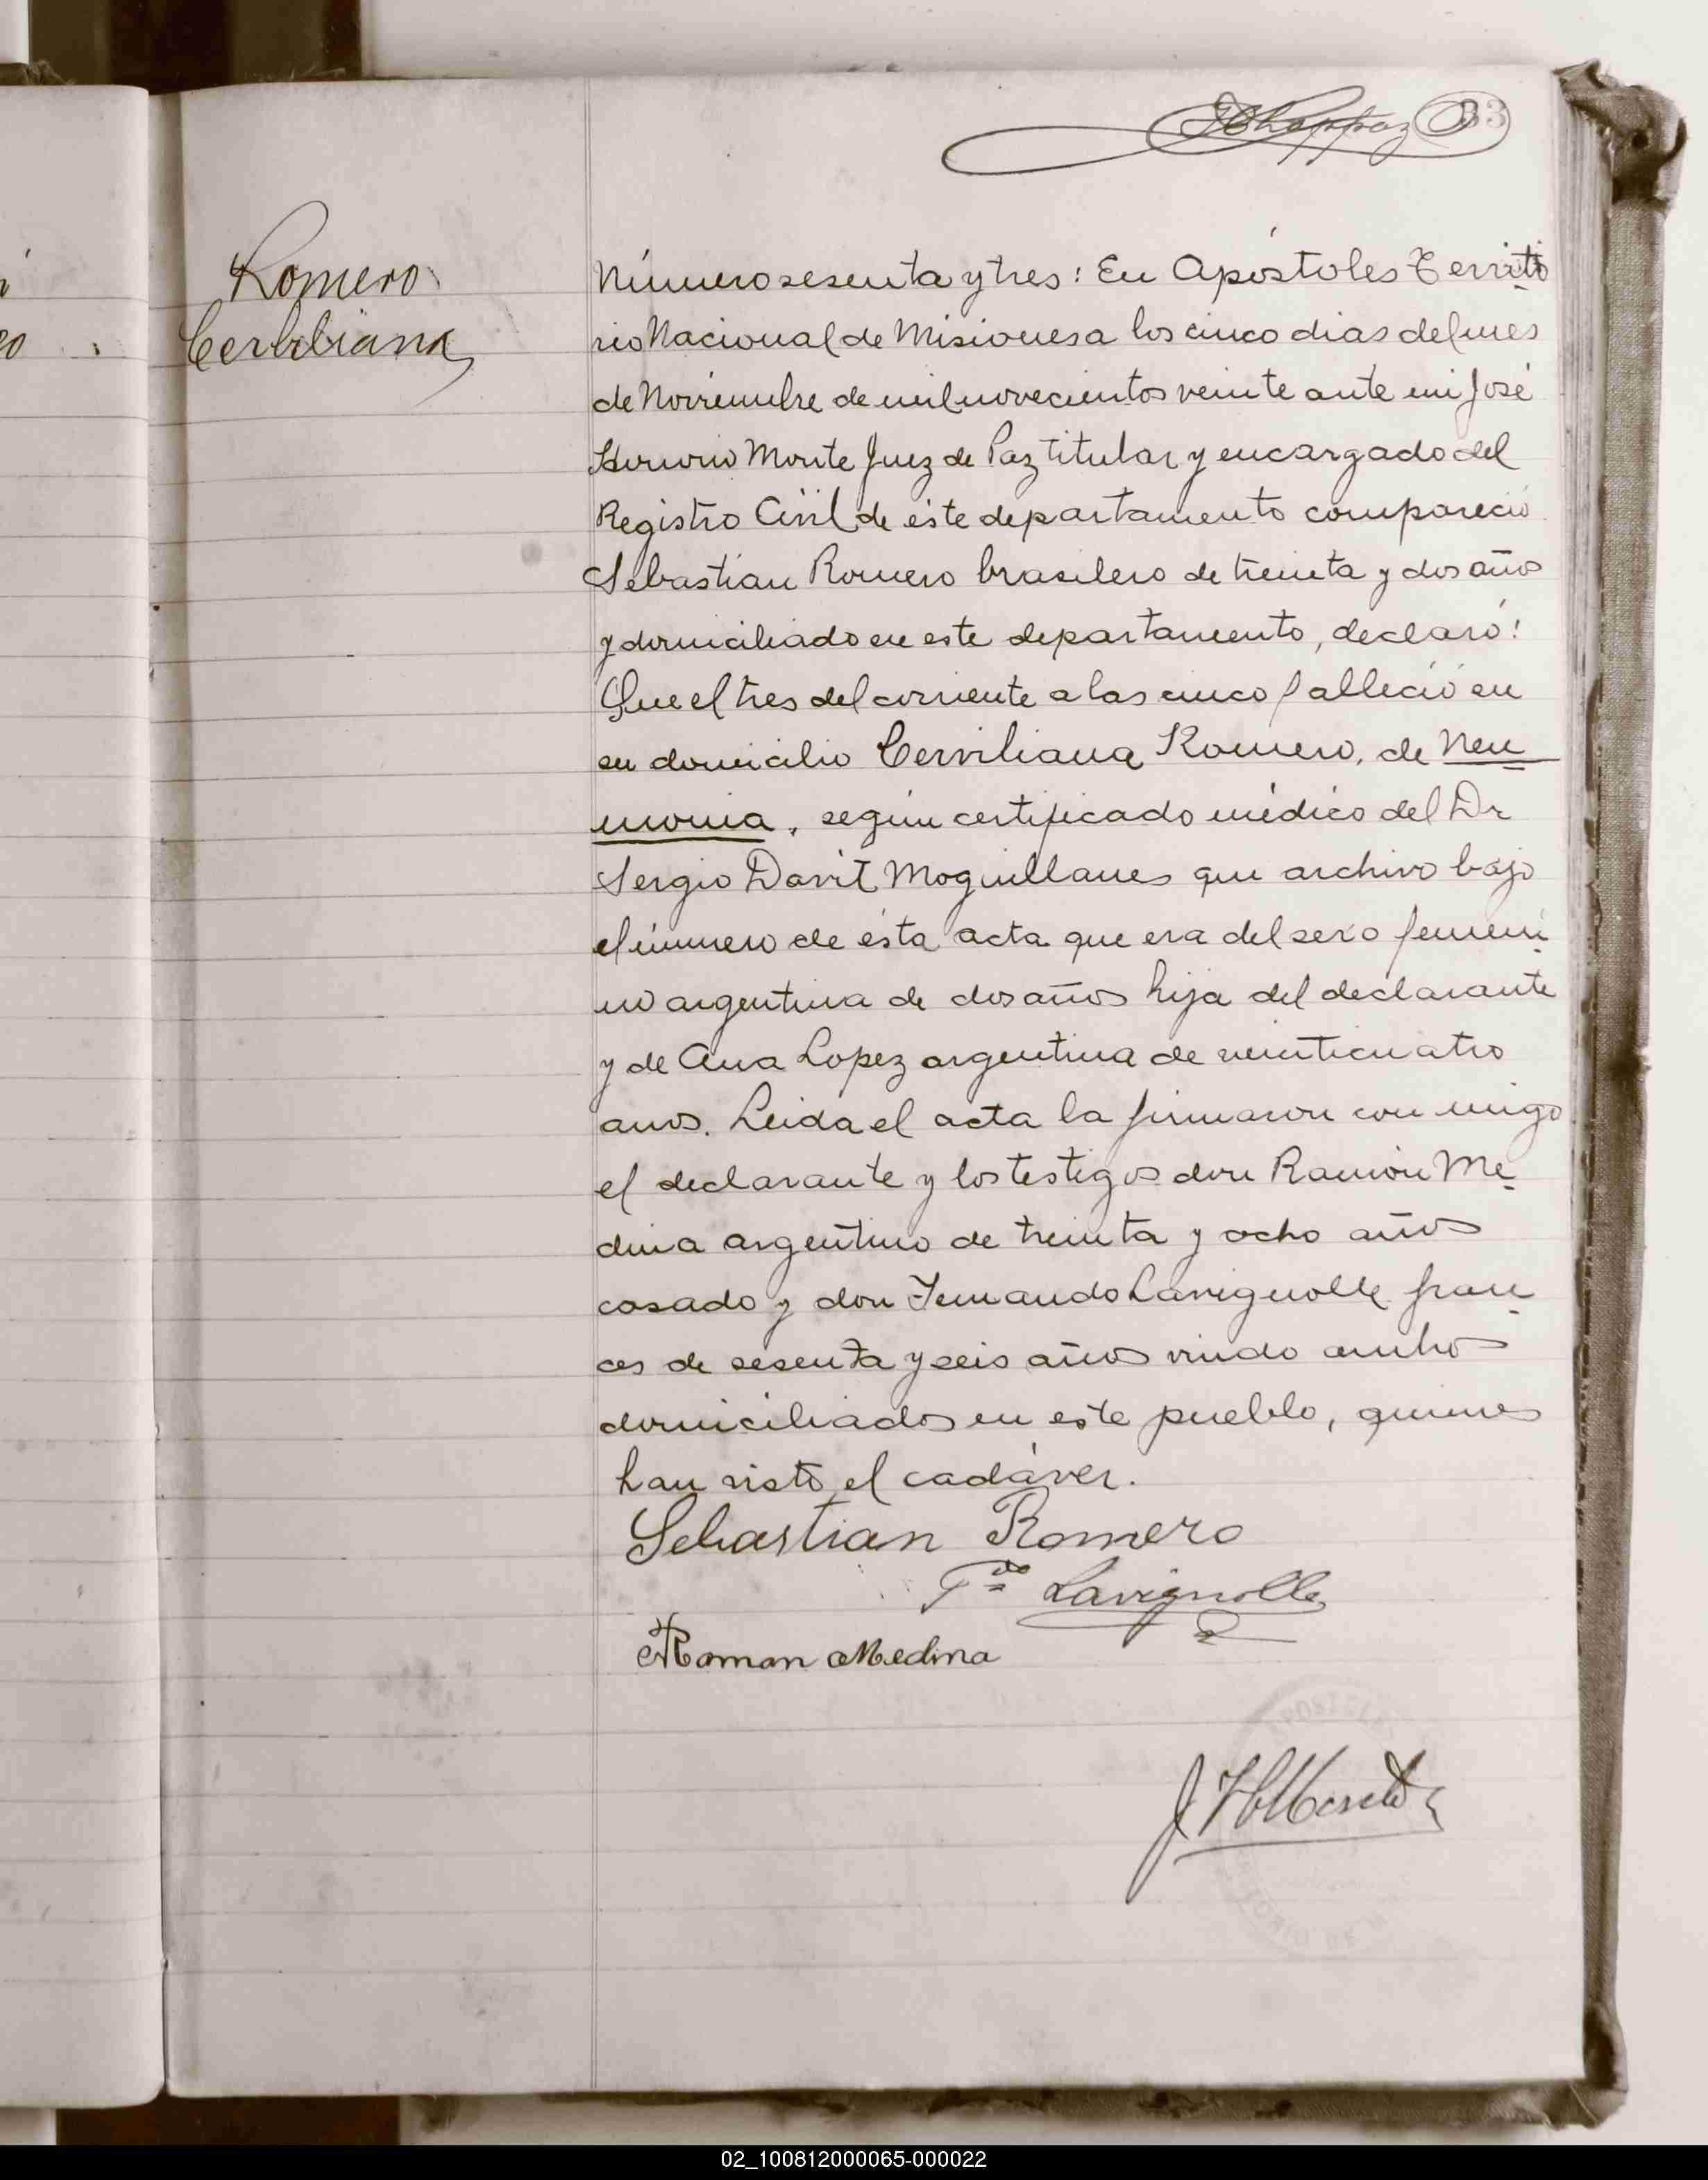 JChappaz 33
Romero
Cerbibiana
Número sesenta y tres: En Apóstoles Territo
rio Nacional de Misiones a los cinco dias del mes
de Noviembre de mil novecientos veinte ante mi José
Honorio Monte Juez de Paz titular y encargado del
Registro Civil de éste departamento compareció
Sebastian Romero brasilero de treinta y dos años
y domiciliado en este departamento, declaró:
Que el tres del corriente a las cinco falleció en
su domicilio Cerviliana Romero, de Neu
monia, según certificado médico del Dr
Sergio Davit Moguillanes que archivo bajo
el número de ésta acta que era del sexo femeni
no argentina de dos años hija del declarante
y de Ana Lopez argentina de veinticuatro
anos. Leida el acta la firmaron con migo
el declarante y los testigos don Ramón Me
dina argentino de treinta y ocho años
casado y don Fernando Lavignolle fran
ces de sesenta y seis años viudo ambos
domiciliados en este pueblo, quienes
han visto el cadáver.
Sebastian Romero
Fdo Lavignolle
Roman Medina
J H Monte
02_100812000065-000022